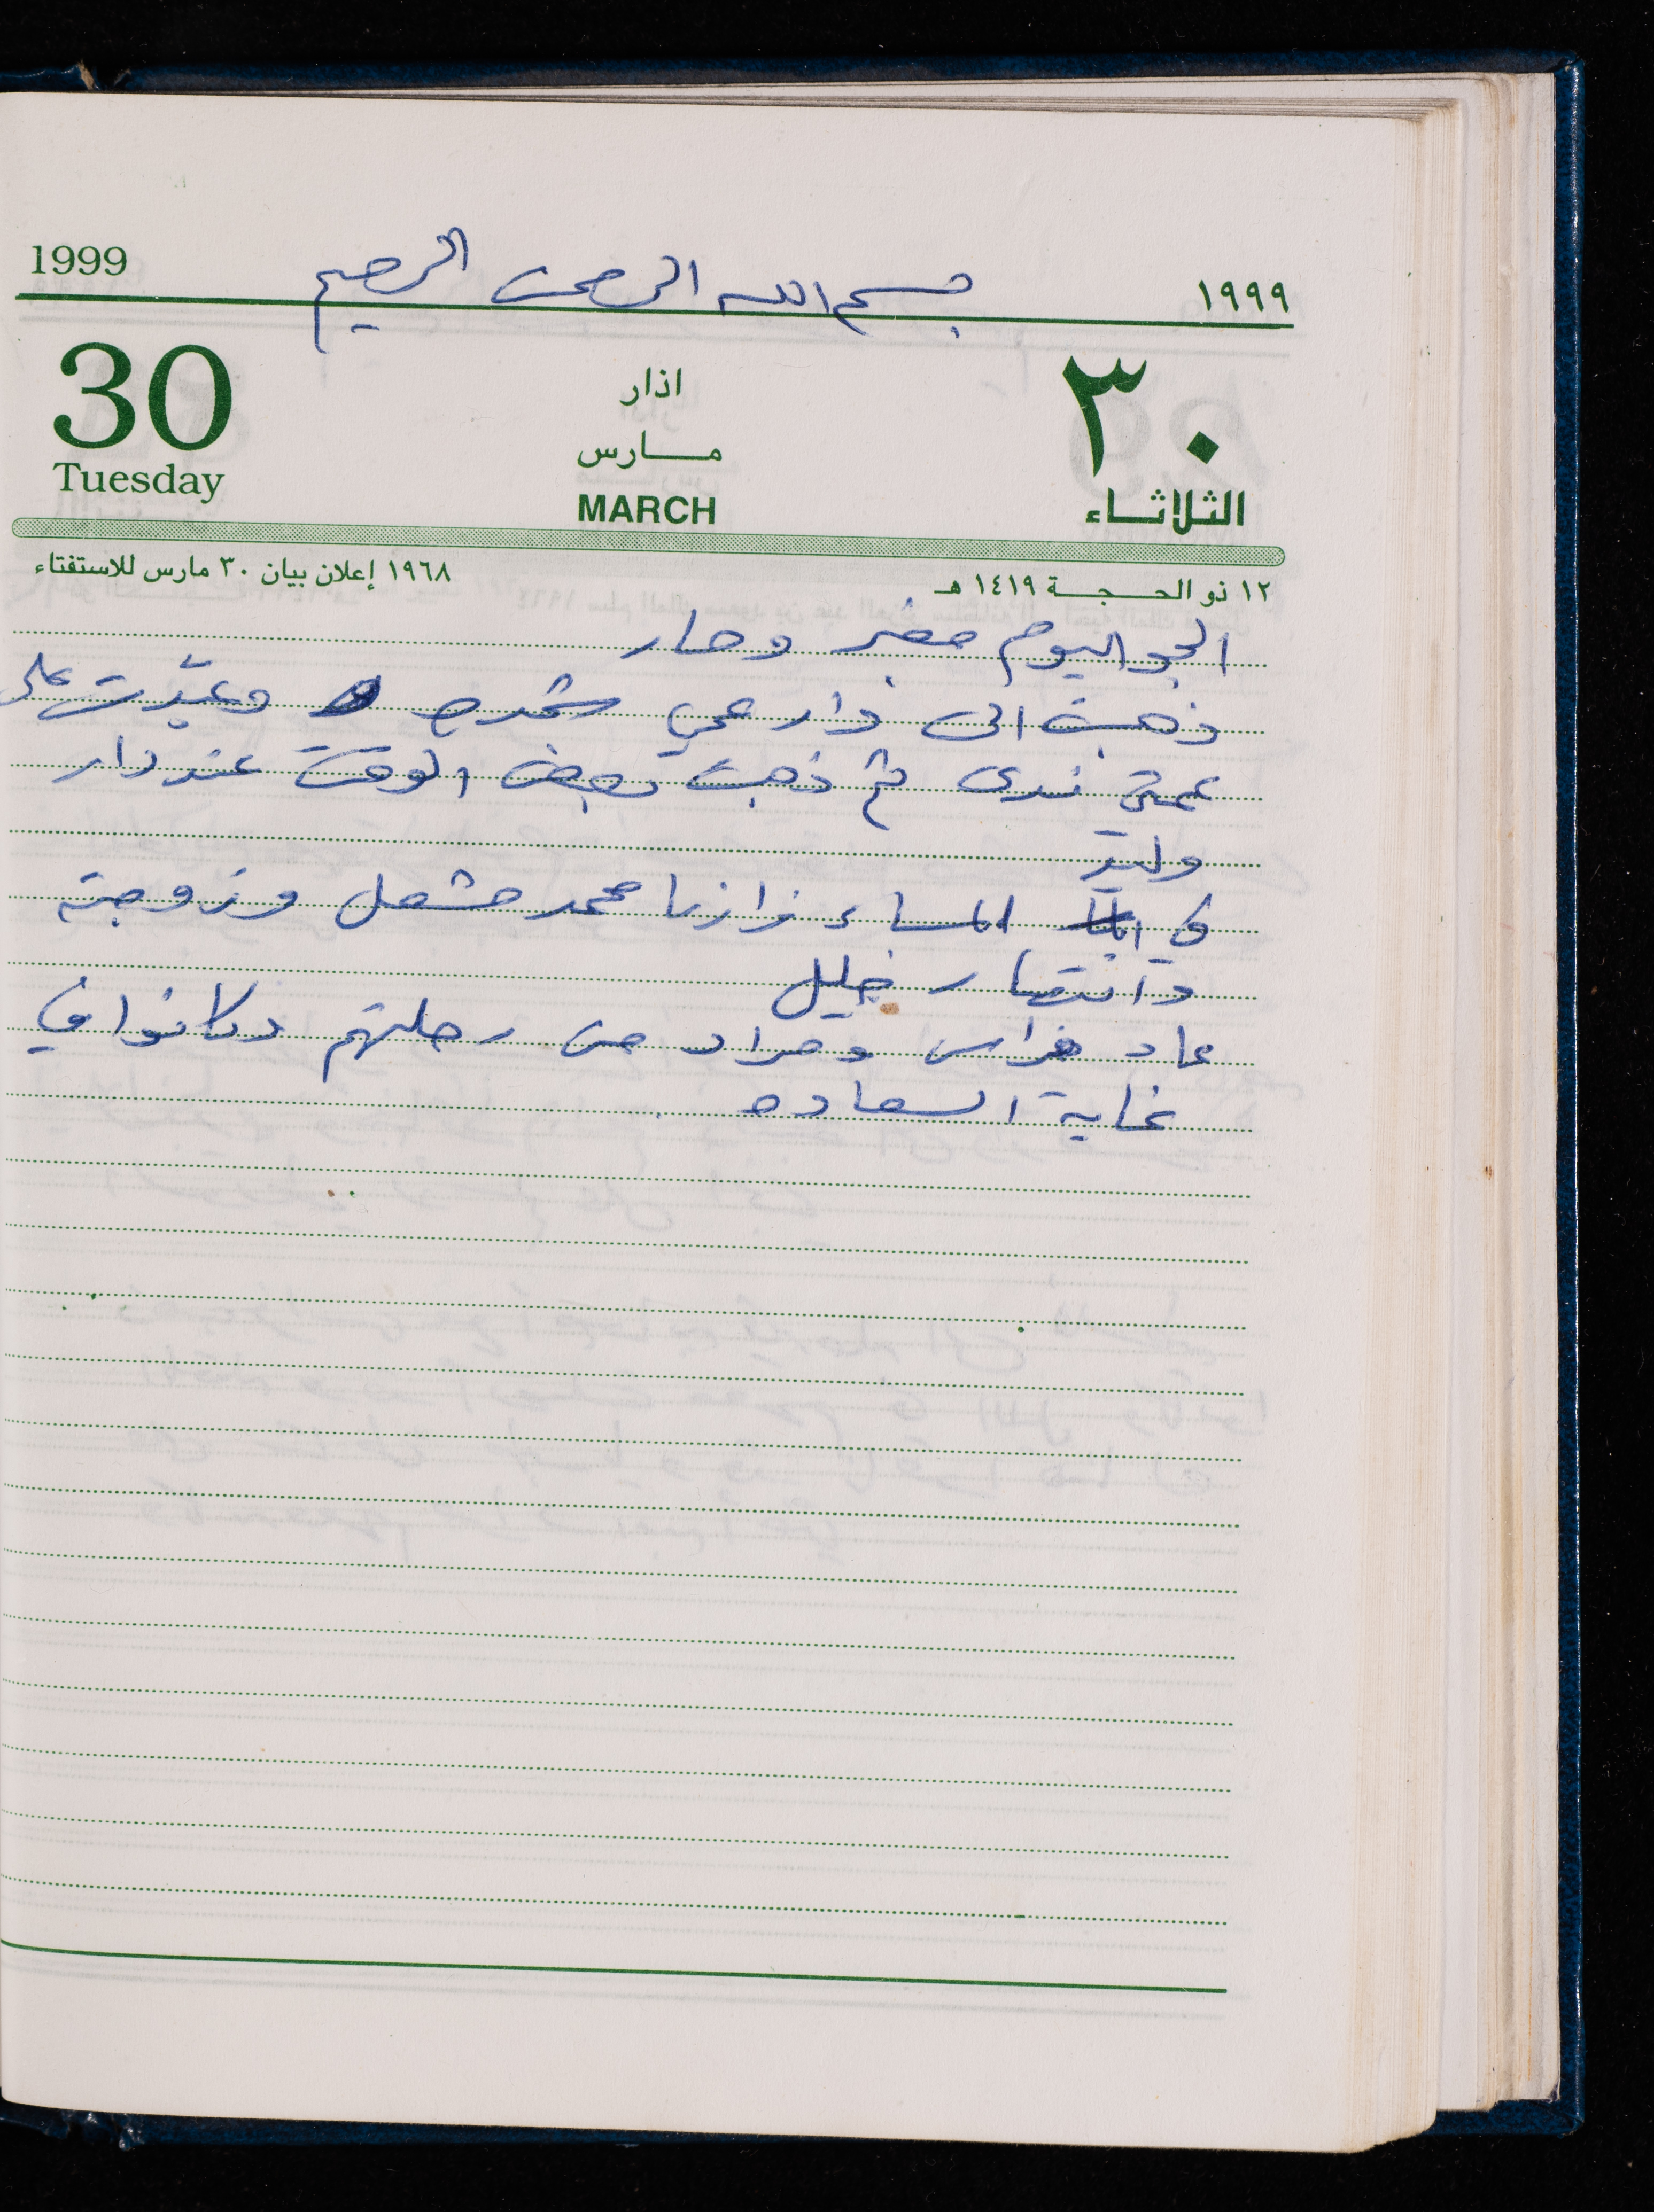 بسم الله الرحمن الرحيم
1999 ١٩٩٩
30 اذار ٣٠
مارس
Tuesday MARCH الثلاثاء
١٢ ذو الحجة ١٤١٩ هـ ١٩٦٨ إعلان بيان ٣٠ مارس للاستفتاء
الجو اليوم مغبر وحار
ذهبت الى دار عمي وعيّدت على
عمتي ندى ثم ذهبت بعض الوقت عند دار
وليد
في المساء زارنا محمد مشعل وزوجته
وانتصار خليل
عاد فراس ومراد من رحلتهم وكانوا في
غاية السعاده .